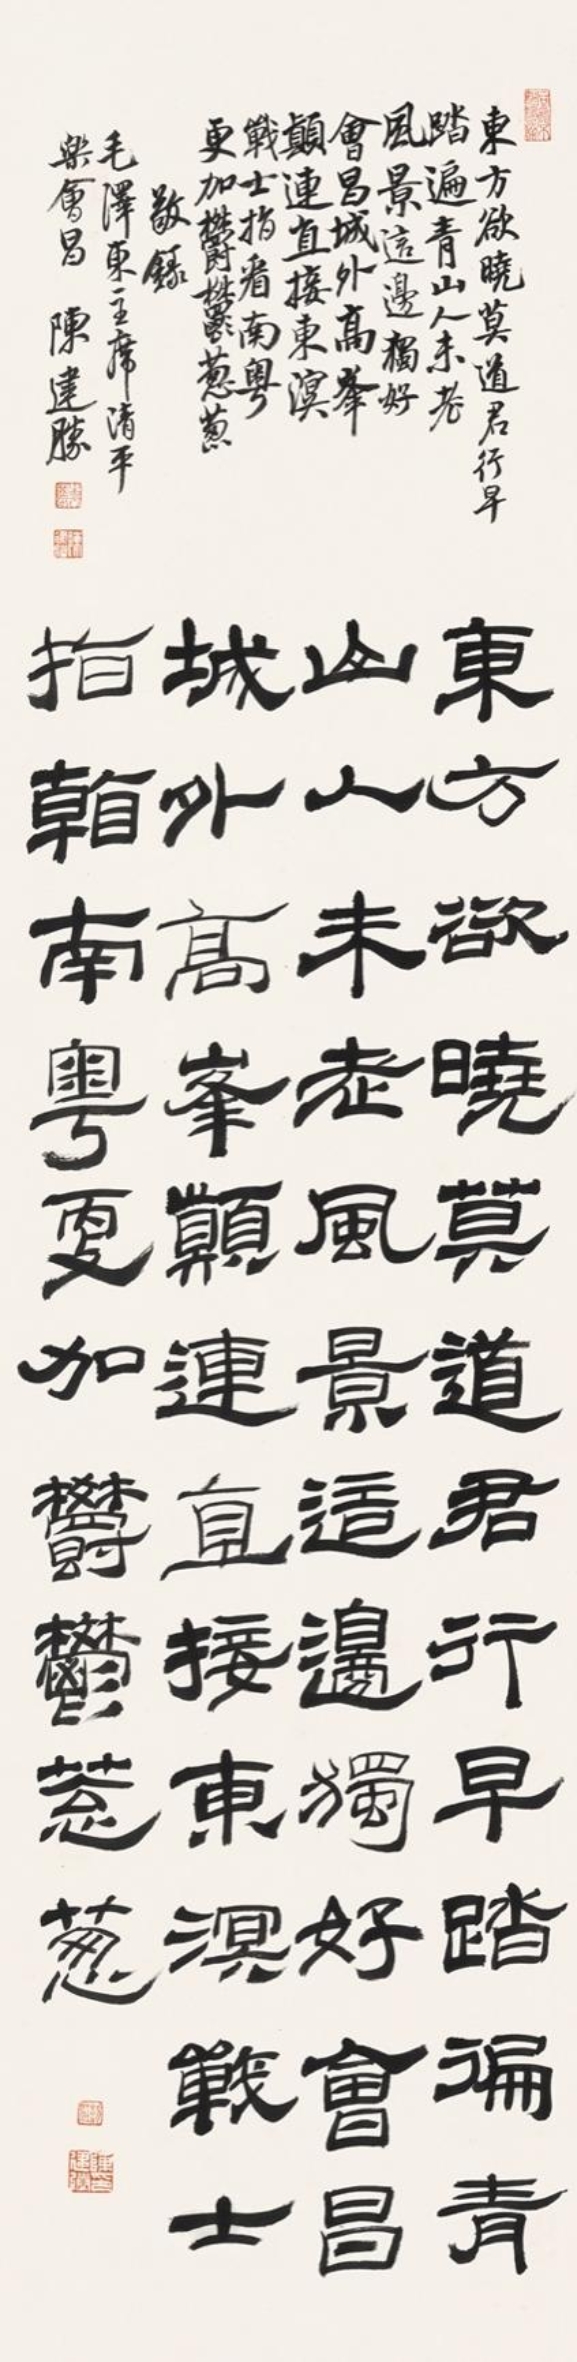 東方欲曉莫道君行早
踏遍青山人未老
風景這邊獨好
會昌城外高峯
顛連直接東溟
戰士指看南粵
更加欝鬱葱葱
敬錄
毛澤東主席清平
樂會昌 陳建勝
東方欲曉莫道君行早踏徧青
山人未老風景這邊獨好會昌
城外高峯顛連直接東溟戰士
指䩞南粵更加欝鬱葱葱